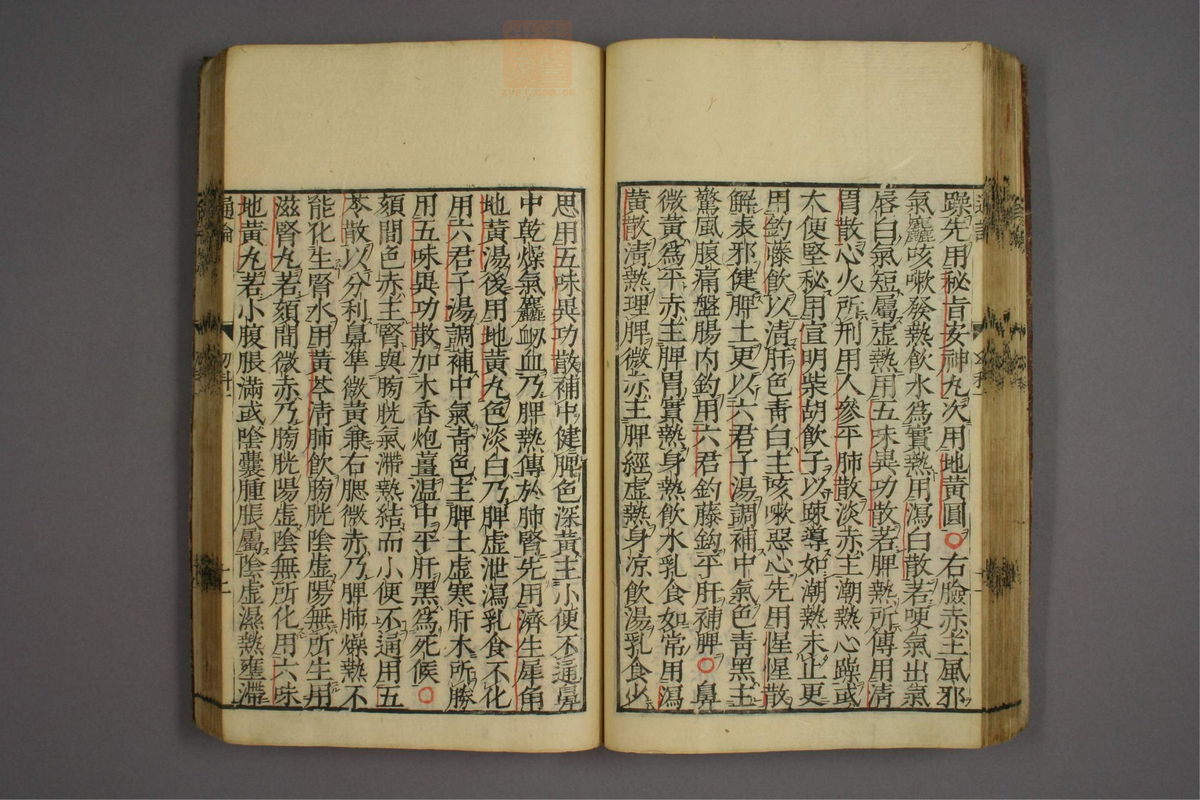 躁先用秘旨安神丸次用地黃圓○右臉赤主風邪
氣麤咳嗽發熱飲水為實熱用瀉白散若哽氣出氣
唇白氣短屬虛熱用五味異功散若脾熱所傳用清
胃散心火所刑用人參平肺散淡赤主潮熱心躁或
大便堅秘用宣明柴胡飲子以疎導如潮熱未止更
用鈎藤飲以清肝色青白主咳嗽惡心先用惺惺散
解表邪健脾土更以六君子湯調補中氣色青黑主
驚風腹痛盤腸內釣用六君釣藤鈎平肝補脾○鼻
微黃為平赤主脾胃實熱身熱飲水乳食如常用瀉
黃散清熱理脾微赤主脾經虛熱身涼飲湯乳食少
思用五味異功散補中健脾色深黃主小便不通鼻
中乾燥氣麤衂血乃脾熱傳於肺腎先用濟生犀角
地黃湯後用地黃丸色淡白乃脾虛泄瀉乳食不化
用六君子湯調補中氣青色主脾土虛寒肝木所勝
用五味異功散加木香炮薑溫中平肝黑為死候○
頦間色赤主腎與膀胱氣滯熱結而小便不通用五
苓散以分利鼻準微黃兼右腮微赤乃脾肺燥熱不
能化生腎水用黃芩清肺飲膀胱陰虛陽無所生用
滋腎丸若頦間微赤乃膀胱陽虛陰無所化用六味
地黃丸若小腹脹滿或陰囊腫脹屬陰虛濕熱壅滯